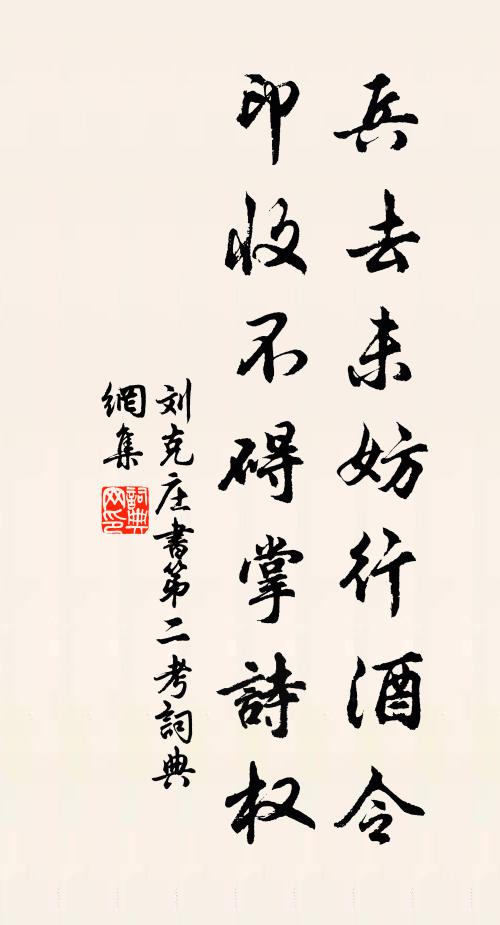 兵去未妨行酒令
印收不碍掌詩权
刘克庄書第二考詞典
網集
詞典网印